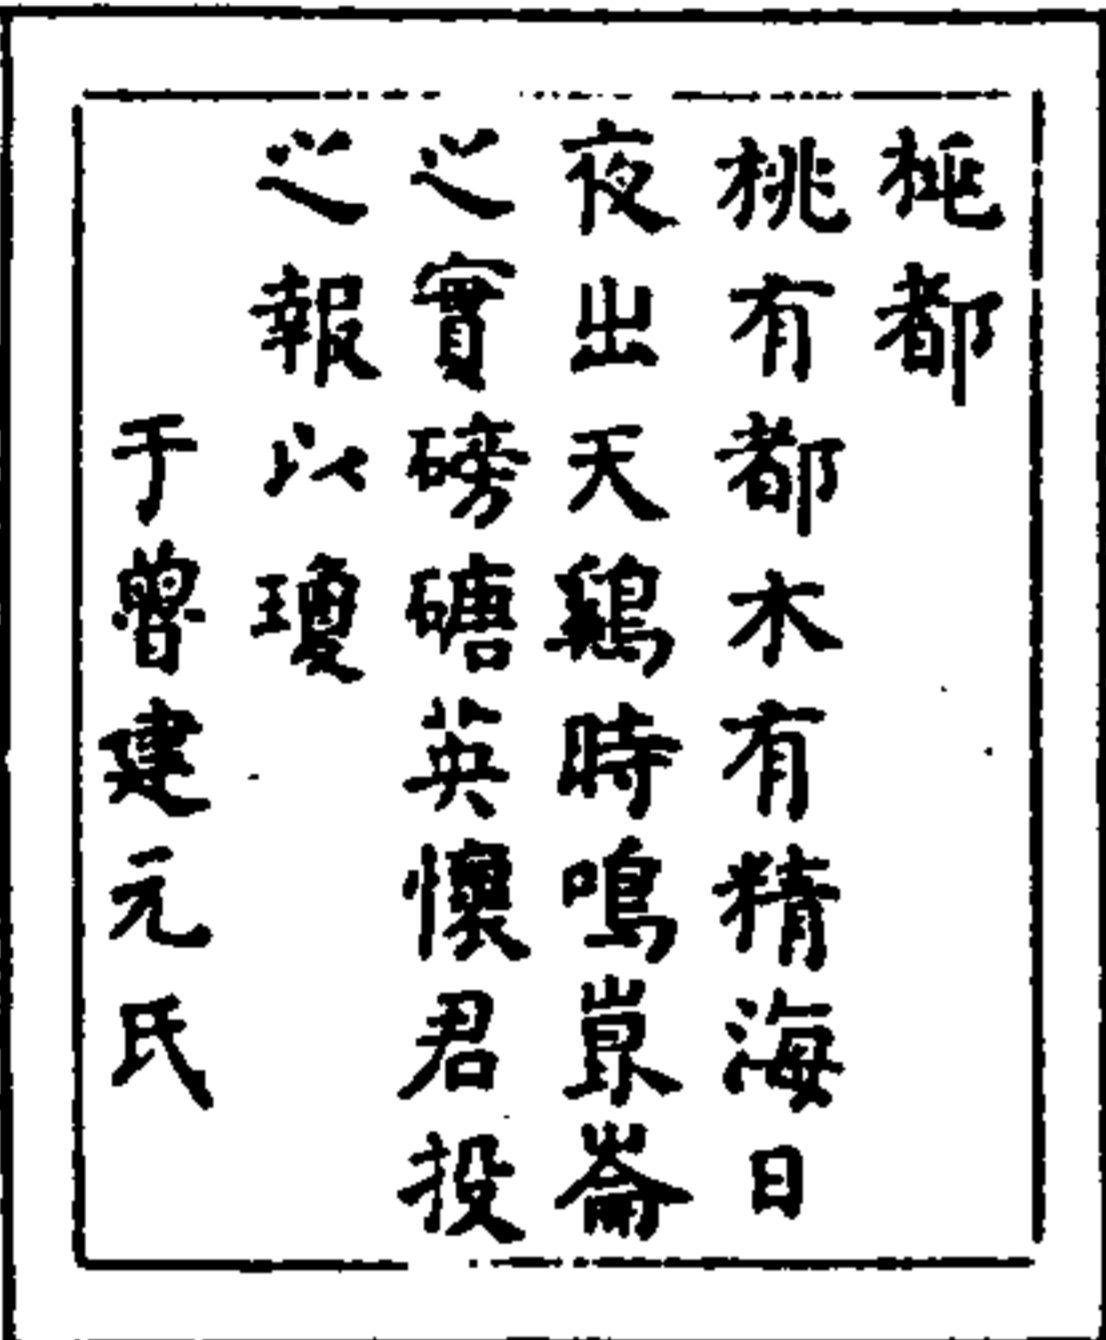 桃都
桃有都木有精海日
夜出天鷄時鳴崑崙
之實磅磄英懷君投
之報以瓊
于魯建元氏